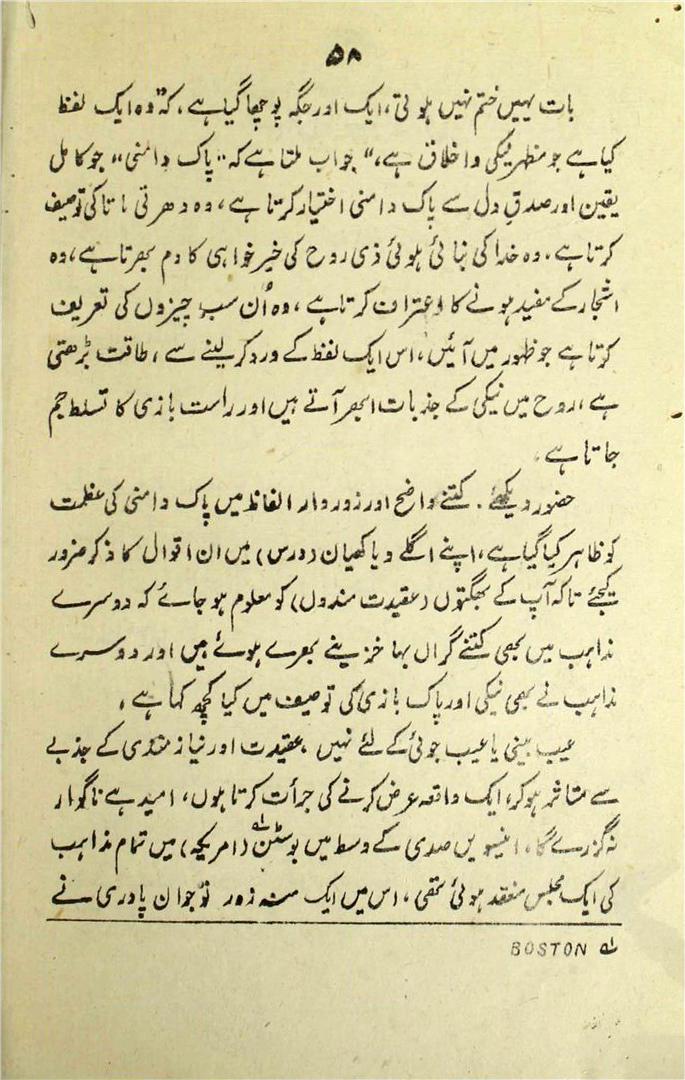 ۵۸
بات یہیں ختم نہیں ہوتی، ایک اور جگہ پوچھا گیا ہے، کہ "وہ ایک لفظ
کیا ہے جو مظہر نیکی و اخلاق ہے،" جواب ملتا ہے کہ "پاک دامنی" جو کامل
یقین اور صدقِ دل سے پاک دامنی اختیار کرتا ہے، وہ دھرتی ماتا کی توصیف
کرتا ہے۔ وہ خدا کی بنائی ہوئی ذی روح کی خیر خواہی کا دم بھرتا ہے، وہ
اشجار کے مفید ہونے کا اعتراف کرتا ہے، وہ اُن سب چیزوں کی تعریف
کرتا ہے جو ظہور میں آئیں، اس ایک لفظ کے ورد کر لینے سے، طاقت بڑھتی
ہے، روح میں نیکی کے جذبات ابھر آتے ہیں اور راست بازی کا تسلط جم
جاتا ہے،
حضور دیکھئے۔ کتنے واضح اور زور دار الفاظ میں پاک دامنی کی عظمت
کو ظاہر کیا گیا ہے، اپنے اگلے ویاکھیان (درس) میں ان اقوال کا ذکر ضرور
کیجئے تاکہ آپ کے بھگتوں (عقیدت مندوں) کو معلوم ہو جائے کہ دوسرے
مذاہب میں بھی کتنے گراں بہا خزینے بھرے ہوئے ہیں اور دوسرے
مذاہب نے بھی نیکی اور پاک بازی کی توصیف میں کیا کچھ کہا ہے،
عیب بینی یا عیب جوئی کے لئے نہیں، عقیدت اور نیاز مندی کے جذبے
سے متاثر ہو کر، ایک واقعہ عرض کرنے کی جرأت کرتا ہوں، امید ہے ناگوار
نہ گزرے گا، انیسویں صدی کے وسط میں بوسٹن لہ (امریکہ) میں تمام مذاہب
کی ایک مجلس منعقد ہوئی تھی، اس میں ایک منہ زور نوجوان پادری نے
لہ BOSTON